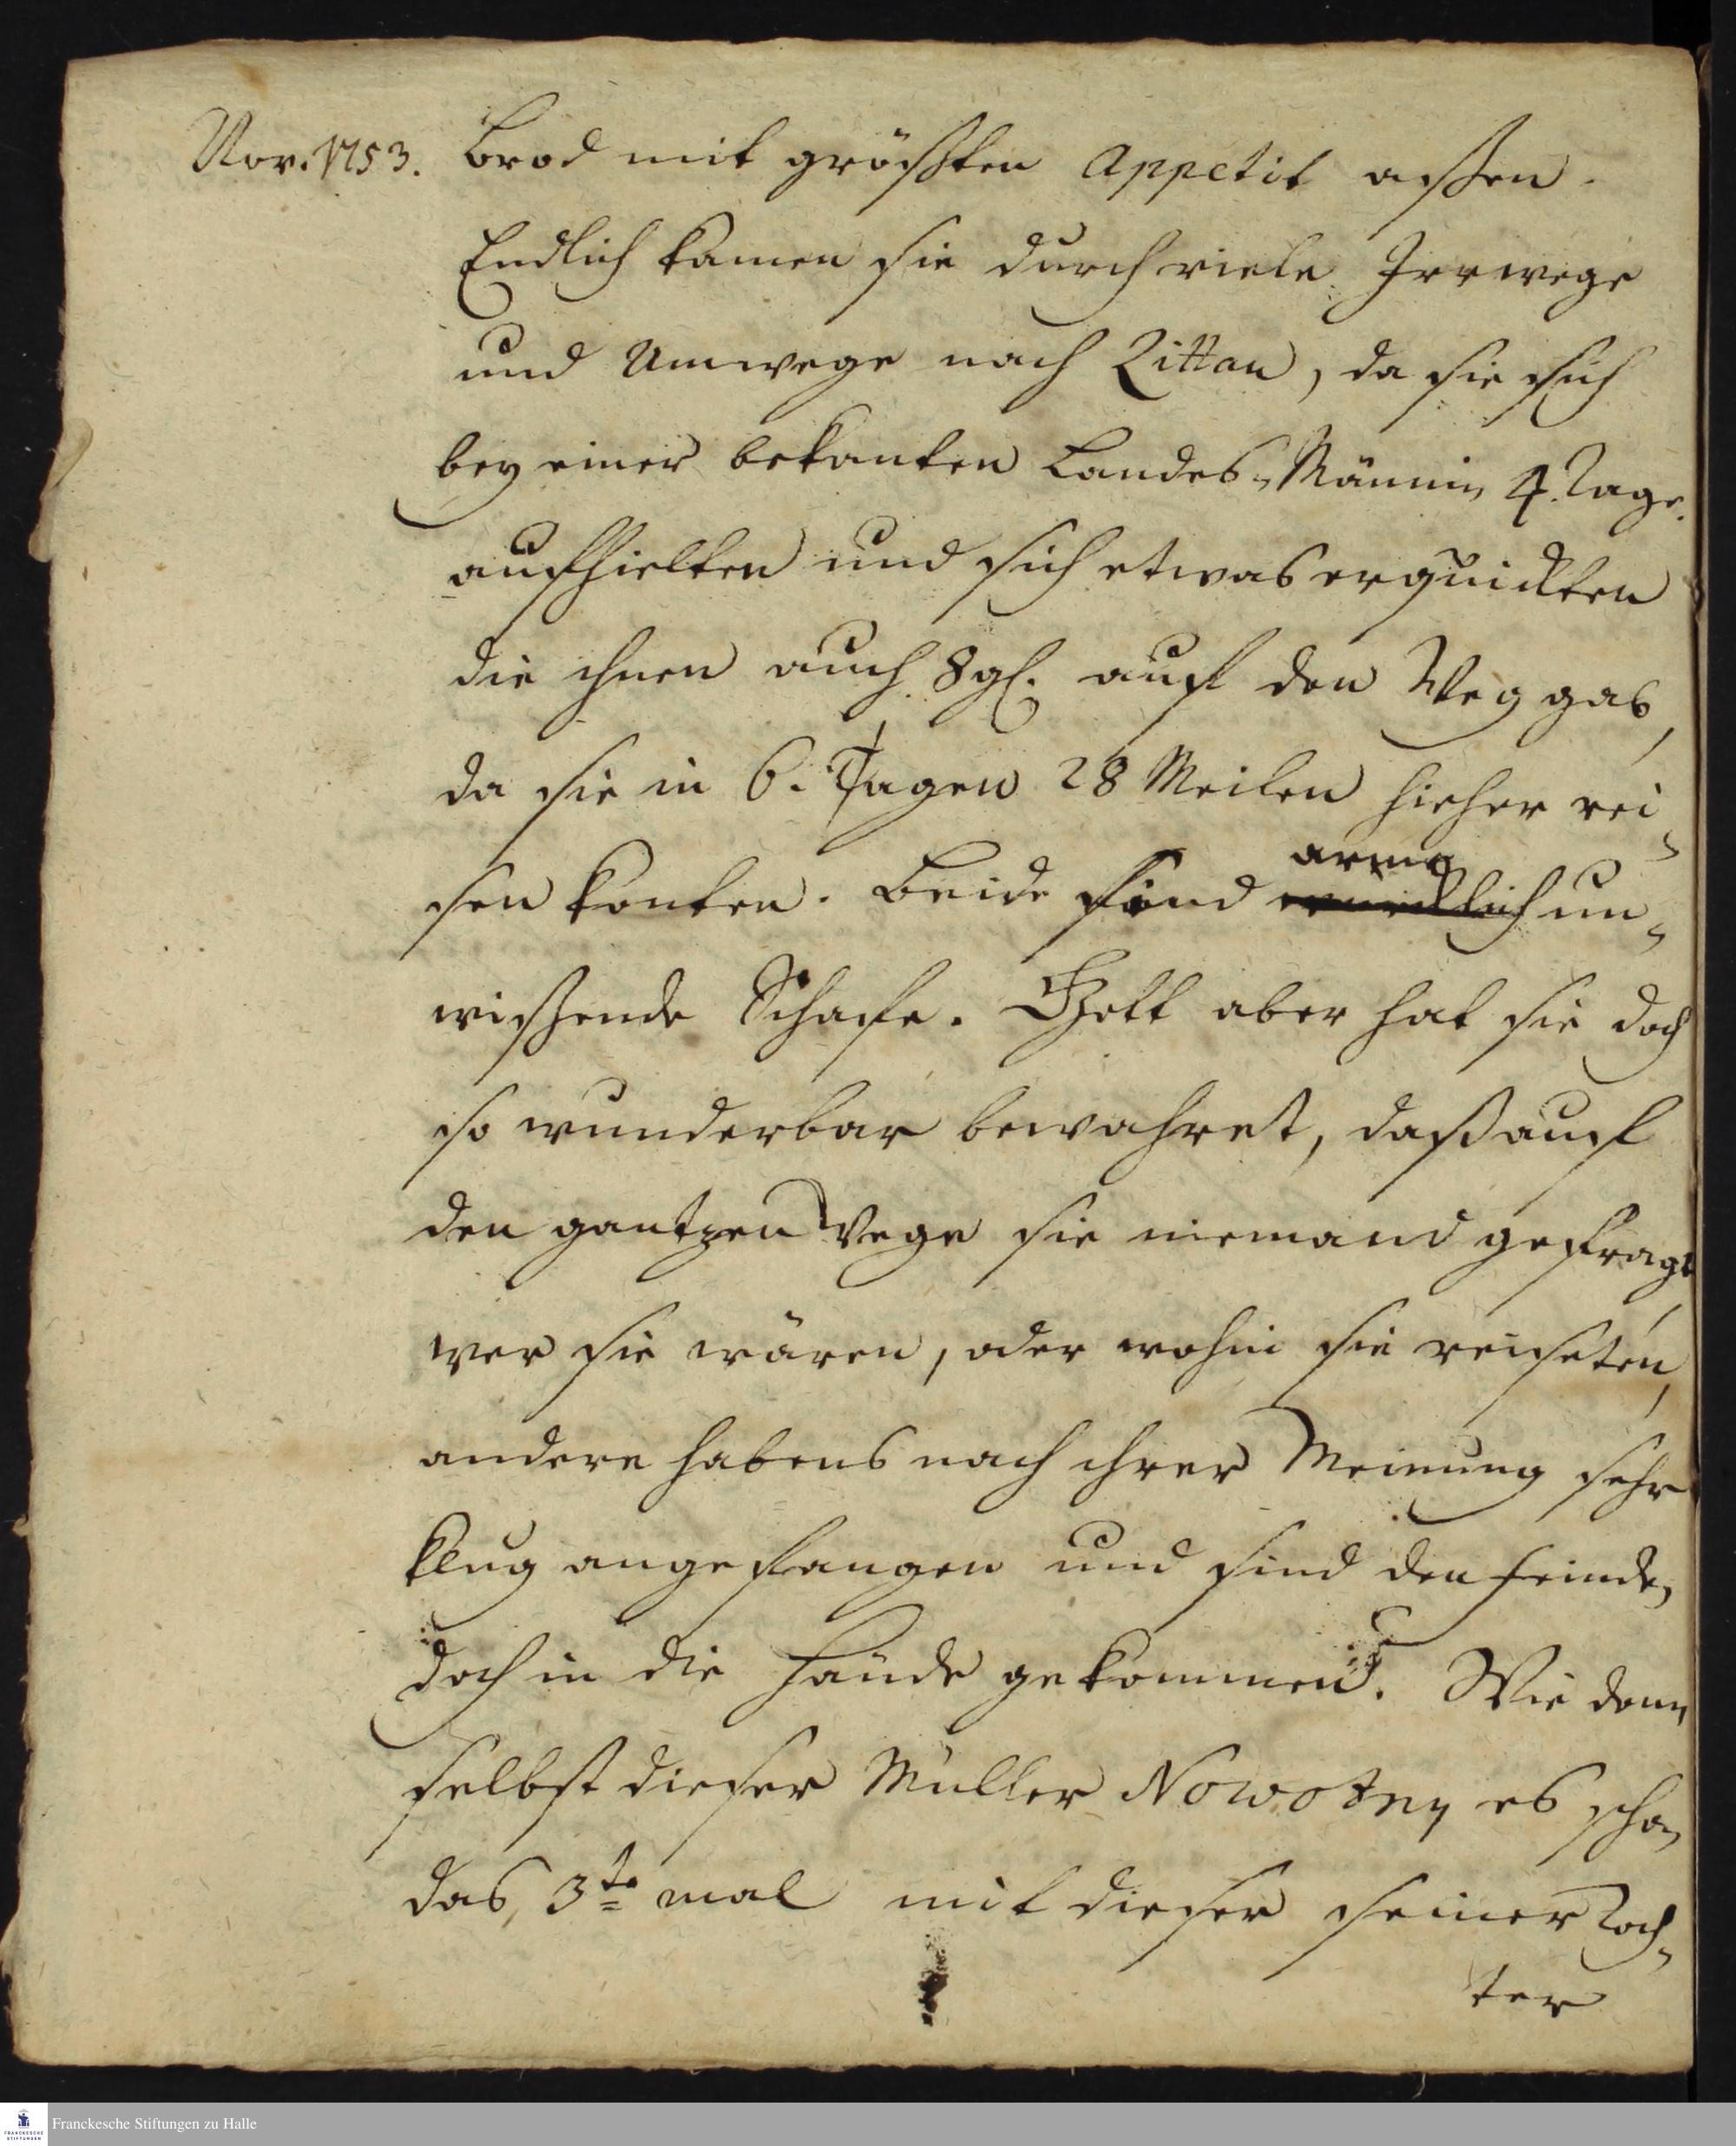 Nov. 1753.
Brod mit gröschten Appetit aßen.
Endlich kamen sie durch viele Irrwege
und Umwege nach Zittau, da sie sich
bey einer bekanten Landes-Männin 4. Tage
aufhielten und sich etwas erquickten
die ihnen auch 8 gl. auf den Weg gab,
da sie in 6. Tagen 28 Meilen hieher rei-
sen konten. Beide sind arme un-
wißende Schafe. Gott aber hat sie doch
so wunderbar bewahret, daß auf
den gantzen Wege sie niemand gefragt,
wer sie wären, oder wohin sie reiseten,
andere habens nach ihrer Meinung sehr
klug angefangen und sind den Feinden
doch in die Hände gekommen. Wie denn
selbst dieser Müller Nowotny es schon
das 3te mal mit dieser seiner Toch-
ter
Franckesche Stiftungen zu Halle
FRANCKESCHE
STIFTUNGEN